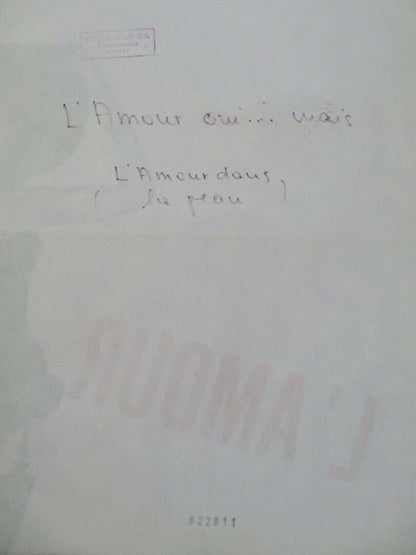 L'Amour oui... mais
L'Amour dans
(la peau)
L'AMOUR
22811